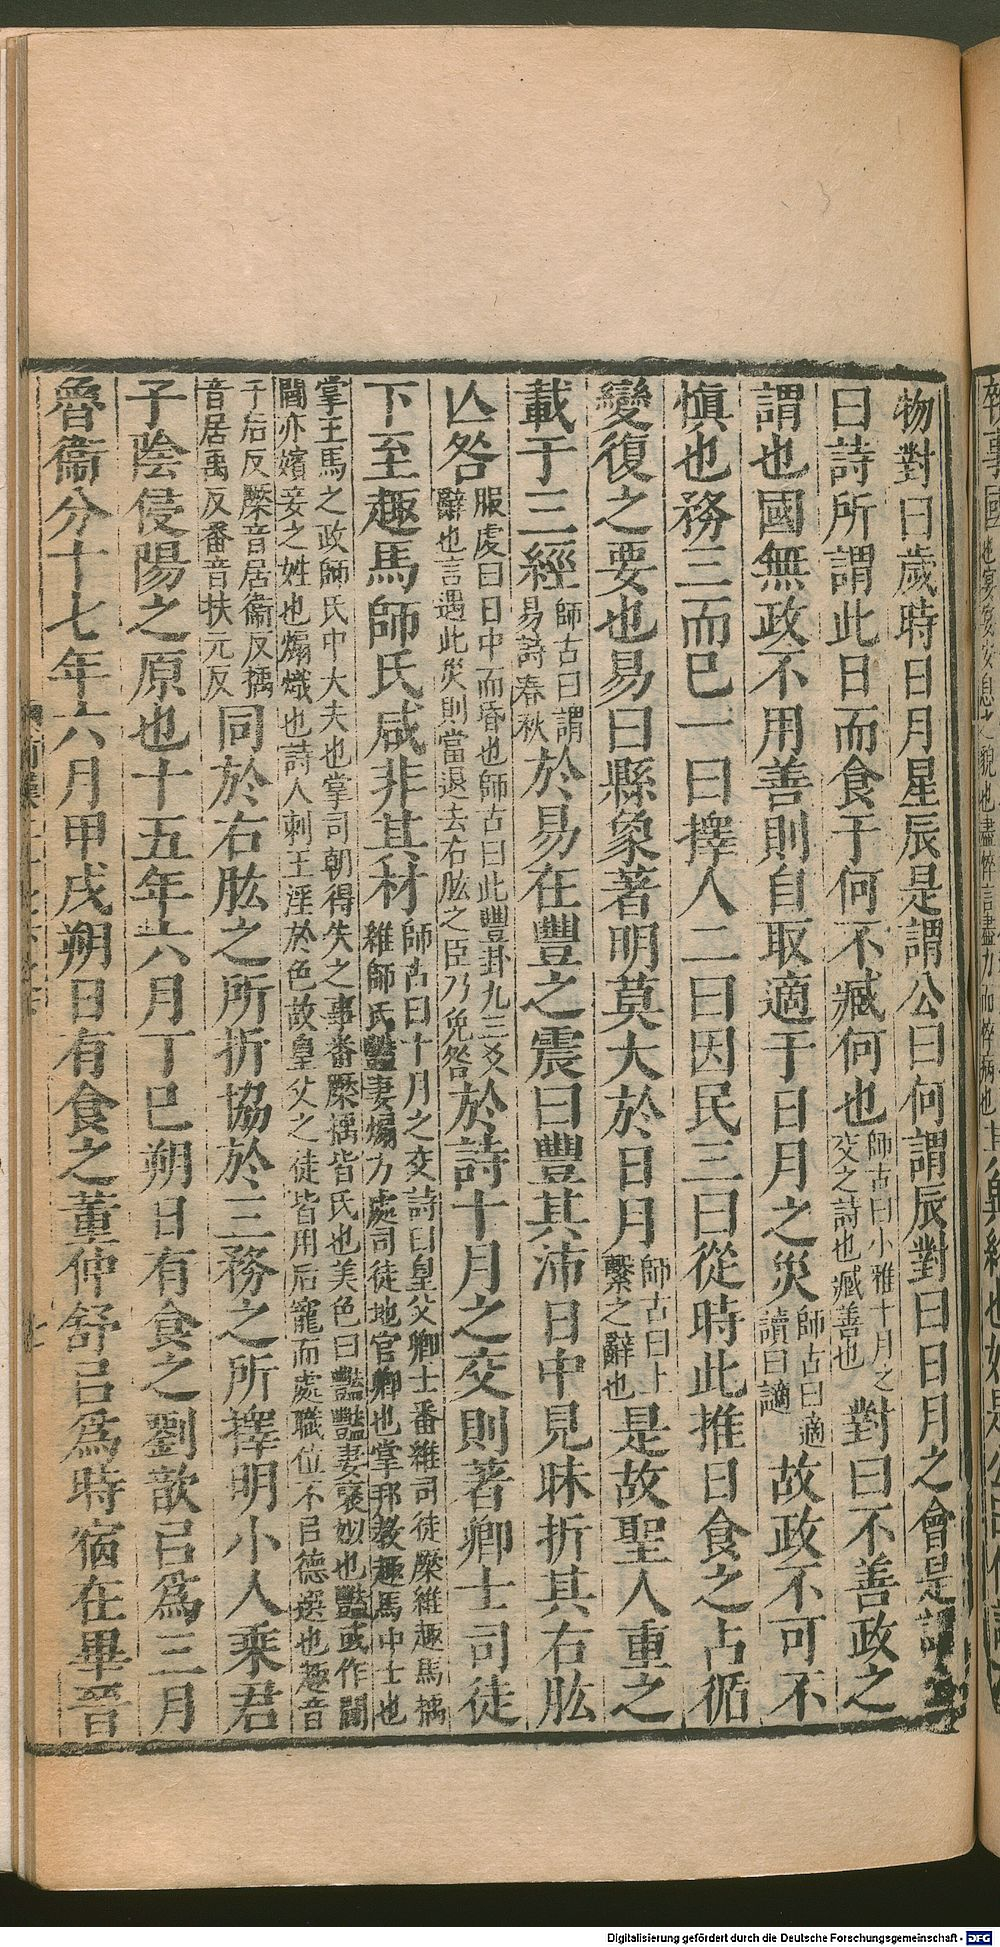 物對曰歲時日月星辰是謂公曰何謂辰對曰日月之會是謂
曰詩所謂此日而食于何不臧何也師古曰小雅十月之交之詩也臧善也對曰不善政之
謂也國無政不用善則自取適于日月之災師古曰適讀曰謫故政不可不
慎也務三而已一曰擇人二曰因民三曰從時此推日食之占循
變復之要也易曰縣象著明莫大於日月師古曰上繫之辭也是故聖人重之
載于三經師古曰謂易詩春秋於易在豐之震曰豐其沛日中見昧折其右肱
亾咎服虔曰日中而昏也師古曰此豐卦九三爻辭也言遇此災則當退去右肱之臣乃免咎於詩十月之交則著卿士司徒
下至趣馬師氏咸非其材師古曰十月之交詩曰皇父卿士番維司徒蹶維趣馬楀維師氏豔妻煽方處司徒地官卿也掌邦教趣馬中士也
掌王馬之政師氏中大夫也掌司朝得失之事番蹶楀皆氏也美色曰豔豔妻襃姒也豔或作閻閻亦嬪妾之姓也煽熾也詩人刺王淫於色故皇父之徒皆用后寵而處職位不㠯德選也趣音
千后反蹶音居衞反楀音居禹反番音扶元反同於右肱之所折協於三務之所擇明小人乘君
子陰侵陽之原也十五年六月丁巳朔日有食之劉歆㠯爲三月
魯衞分十七年六月甲戌朔日有食之董仲舒㠯爲時宿在畢晉
Digitalisierung gefördert durch die Deutsche Forschungsgemeinschaft - DFG